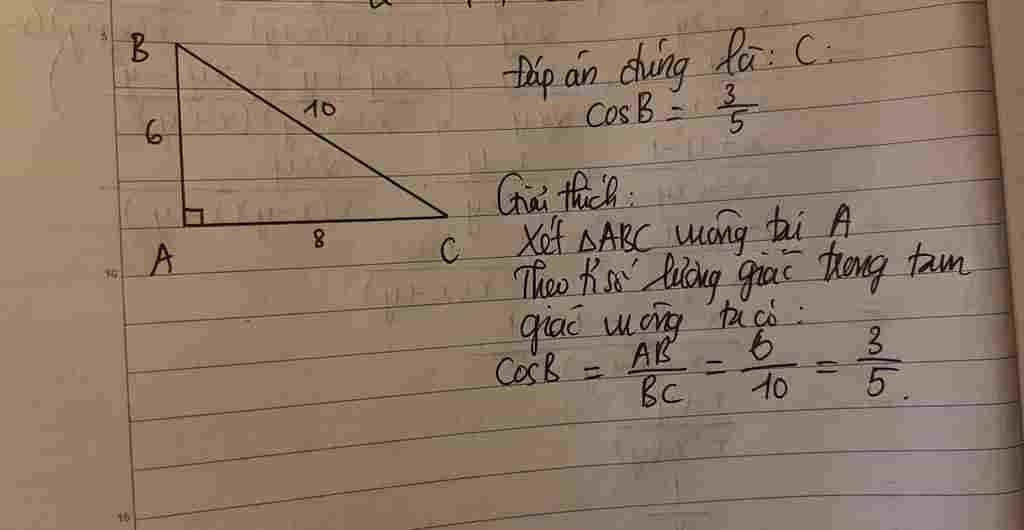 B
10
6
A
8
C
Đáp án đúng là: C:
cosB = 3/5
Giải thích:
Xét ΔABC vuông tại A
Theo tỉ số lượng giác trong tam
giác vuông ta có:
CosB = AB/BC = 6/10 = 3/5.
5
10
15